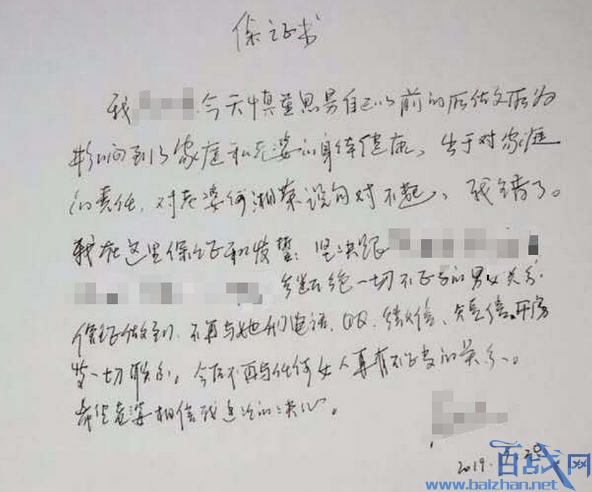 保证书
我 今天慎重思易自己以前的所做文所为
影响到了家庭和老婆的身体健康，出于对家庭
的责任，对老婆何湘荣说句对不起，我错了。
我在这里保证和发誓：坚决跟
断绝一切不正当的男女关系.
保证做到，不再与她们电话、QQ、微信、短信、开房
等一切联系，今后不再与任何女人再有不正当的关系。
希望老婆相信我这次的决心。
2019.
百战网
www.baizhan.net